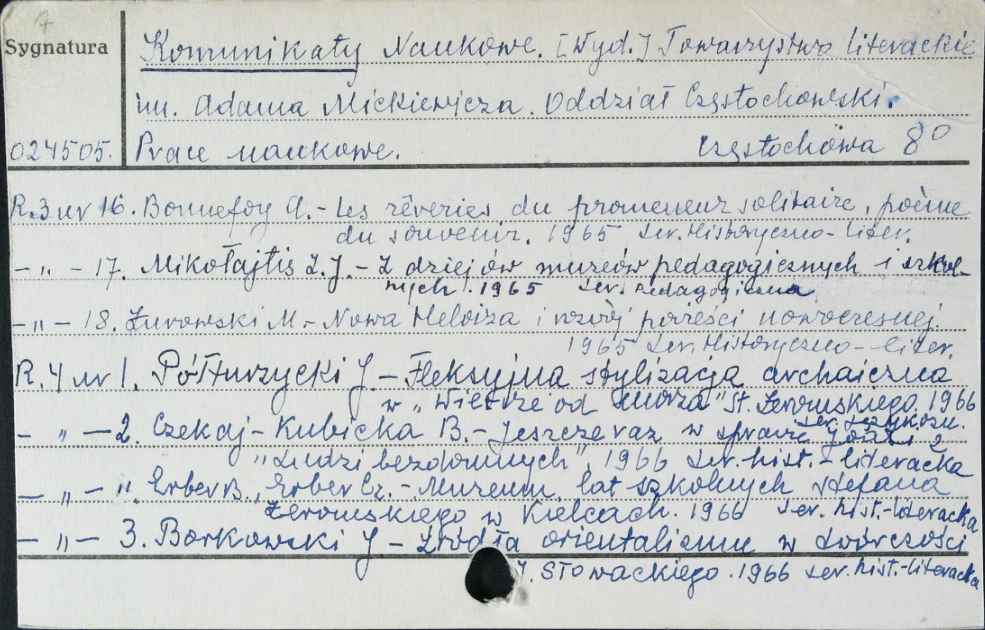 Sygnatura
Komunikaty Naukowe. [Wyd.] Towarzystwo literackie
im. Adama Mickiewicza. Oddział Częstochowski.
024505. Prace naukowe. Częstochowa 8°
R.3 nr 16. Bonnefoy A. - Les rêveries du promeneur solitaire, poème
du souvenir. 1965 ser. Historyczno-liter.
- " - 17. Mikołajtis Z. J. - Z dziejów muzeów pedagogicznych i szkol-
nych. 1965 ser. Pedagogiczna
- " - 18. Żurowski M. - Nowa Heloiza i rozwój powieści nowoczesnej.
1965 Ser. Historyczno-liter.
R. 4 nr 1. Półturzycki J - Fleksyjna stylizacja archaiczna
w "Wietrze od morza" St. Żeromskiego 1966
ser. Językozn.
- " - 2. Czekaj-Kubicka B. - Jeszcze raz w sprawie Joasi z
"Ludzi bezdomnych". 1966 ser. hist.-literacka
- " - " Erber B., Erber Cz. - Muzeum lat szkolnych Stefana
Żeromskiego w Kielcach. 1966 ser. hist.-literacka
- " - 3. Borkowski J - Źródła orientalizmu w twórczości
J. Słowackiego. 1966 ser. hist.-literacka